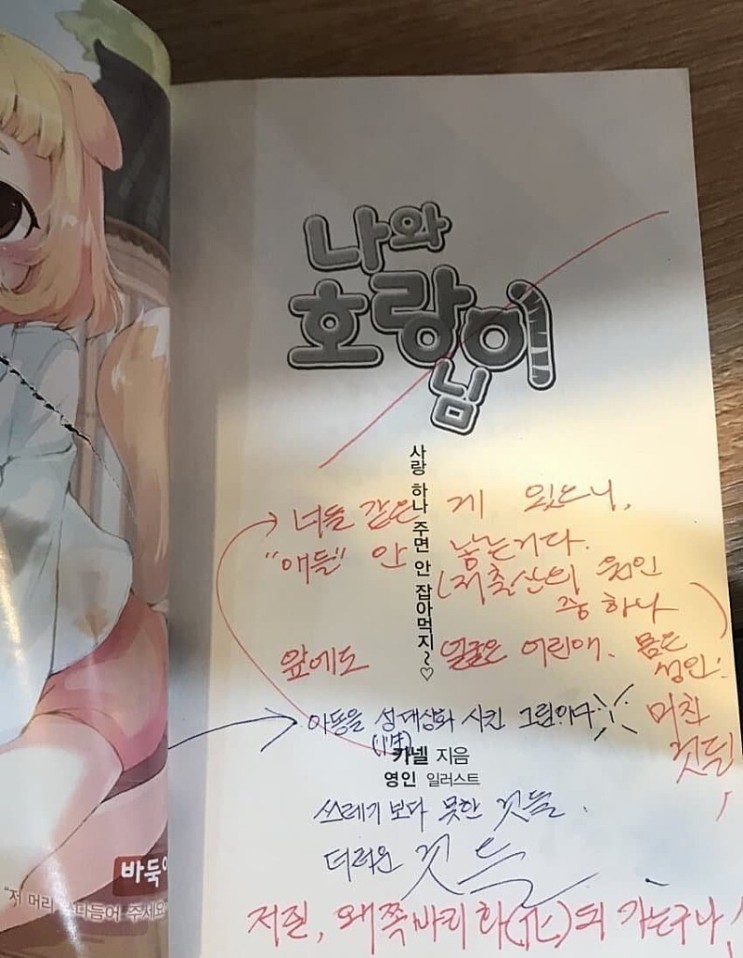 나와
호랑이
님
사랑 하나 주면 안 잡아먹지~♡
너들 같은 게 있으니,
"애들" 안 낳는거다.
(저출산의 원인
중 하나)
앞에도 얼굴은 어린애. 몸은
성인:
미친
것들
아동을 성대상화 시킨 그림이다
(性)
카넬 지음
영인 일러스트
쓰레기 보다 못한 것들.
더러운 것들
바둑
"저 머리 쓰다듬어 주세요
저질, 왜쪽바리 화(化)되 가는구나,